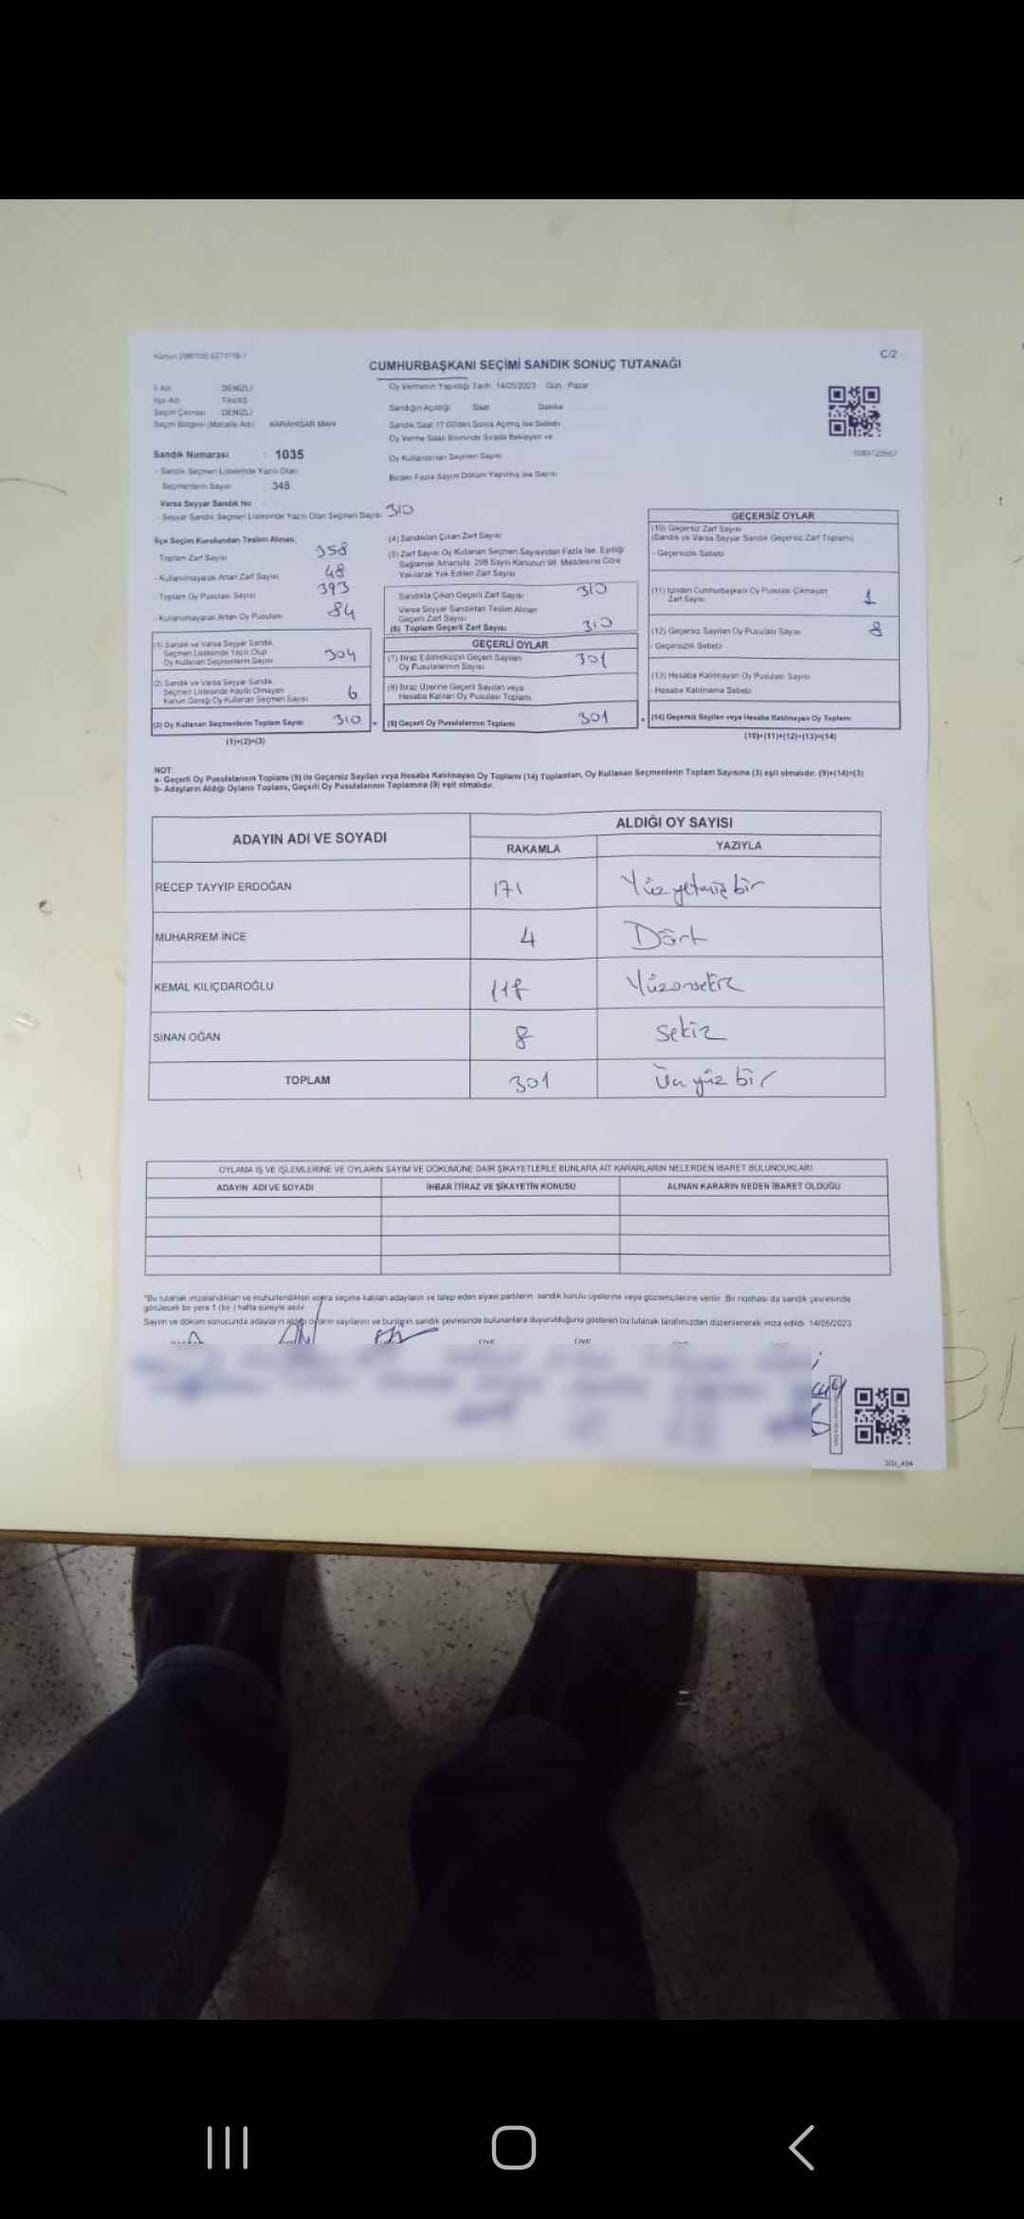 C/2
CUMHURBAŞKANI SEÇİMİ SANDIK SONUÇ TUTANAĞI
DENİZLİ
Oy Vermenin Yapıldığı Tarih 14/05/2023 Gün Pazar
İlçe Adı TAVAS
Seçim Çevresi DENİZLİ
Sandığın Açıldığı Saat Dakika
Seçim Bölgesi (Mahalle Adı) KARAHİSAR MAH
Sandık Saat 17:00'den Sonra Açılmış İse Sebebi
Oy Verme Saati Bitiminde Sırada Bekleyen ve
Oy Kullandırılan Seçmen Sayısı
Sandık Numarası : 1035
- Sandık Seçmen Listesinde Yazılı Olan
Seçmenlerin Sayısı : 348
Birden Fazla Sayım Döküm Yapılmış İse Sayısı
Varsa Seyyar Sandık No
- Seyyar Sandık Seçmen Listesinde Yazılı Olan Seçmen Sayısı 310
İlçe Seçim Kurulundan Teslim Alınan;
Toplam Zarf Sayısı 358
- Kullanılmayarak Artan Zarf Sayısı 48
- Toplam Oy Pusulası Sayısı 393
- Kullanılmayarak Artan Oy Pusulası 84
(1) Sandık ve Varsa Seyyar Sandık
Seçmen Listesinde Yazılı Olup
Oy Kullanan Seçmenlerin Sayısı 304
(2) Sandık ve Varsa Seyyar Sandık
Seçmen Listesinde Kayıtlı Olmayan
Kanun Gereği Oy Kullanan Seçmen Sayısı 6
(3) Oy Kullanan Seçmenlerin Toplam Sayısı 310 =
(1)+(2)=(3)
(4) Sandıktan Çıkan Zarf Sayısı
(5) Zarf Sayısı Oy Kullanan Seçmen Sayısından Fazla İse, Eşitliği
Sağlamak Amacıyla, 298 Sayılı Kanunun 98. Maddesine Göre
Yakılarak Yok Edilen Zarf Sayısı
Sandıkta Çıkan Geçerli Zarf Sayısı 310
Varsa Seyyar Sandıktan Teslim Alınan
Geçerli Zarf Sayısı
(6) Toplam Geçerli Zarf Sayısı 310
GEÇERLİ OYLAR
(7) İtiraz Edilmeksizin Geçerli Sayılan
Oy Pusulalarının Sayısı 301
(8) İtiraz Üzerine Geçerli Sayılan veya
Hesaba Katılan Oy Pusulası Toplamı
(9) Geçerli Oy Pusulalarının Toplamı 301 +
GEÇERSİZ OYLAR
(10) Geçersiz Zarf Sayısı
(Sandık ve Varsa Seyyar Sandık Geçersiz Zarf Toplamı)
- Geçersizlik Sebebi
(11) İçinden Cumhurbaşkanı Oy Pusulası Çıkmayan
Zarf Sayısı 1
(12) Geçersiz Sayılan Oy Pusulası Sayısı 8
- Geçersizlik Sebebi
(13) Hesaba Katılmayan Oy Pusulası Sayısı
- Hesaba Katılmama Sebebi
(14) Geçersiz Sayılan veya Hesaba Katılmayan Oy Toplamı
(10)+(11)+(12)+(13)=(14)
NOT:
a- Geçerli Oy Pusulalarının Toplamı (9) ile Geçersiz Sayılan veya Hesaba Katılmayan Oy Toplamı (14) Toplamları, Oy Kullanan Seçmenlerin Toplam Sayısına (3) eşit olmalıdır. (9)+(14)=(3)
b- Adayların Aldığı Oyların Toplamı, Geçerli Oy Pusulalarının Toplamına (9) eşit olmalıdır.
ADAYIN ADI VE SOYADI
ALDIĞI OY SAYISI
RAKAMLA YAZIYLA
RECEP TAYYİP ERDOĞAN 171 Yüz yetmiş bir
MUHARREM İNCE 4 Dört
KEMAL KILIÇDAROĞLU 118 Yüzonsekiz
SİNAN OĞAN 8 sekiz
TOPLAM 301 Üç yüz bir
OYLAMA İŞ VE İŞLEMLERİNE VE OYLARIN SAYIM VE DÖKÜMÜNE DAİR ŞİKAYETLERLE BUNLARA AİT KARARLARIN NELERDEN İBARET BULUNDUKLARI
ADAYIN ADI VE SOYADI İHBAR İTİRAZ VE ŞİKAYETİN KONUSU ALINAN KARARIN NEDEN İBARET OLDUĞU
"Bu tutanak imzalandıktan ve mühürlendikten sonra seçime katılan adayların ve talep eden siyasi partilerin sandık kurulu üyelerine veya gözlemcilerine verilir. Bir nüshası da sandık çevresinde
görülecek bir yere 1 (bir) hafta süreyle asılır.
Sayım ve döküm sonucunda adayların aldığı oyların sayılarını ve bunların sandık çevresinde bulunanlara duyurulduğunu gösteren bu tutanak tarafımızdan düzenlenerek imza edildi. 14/05/2023